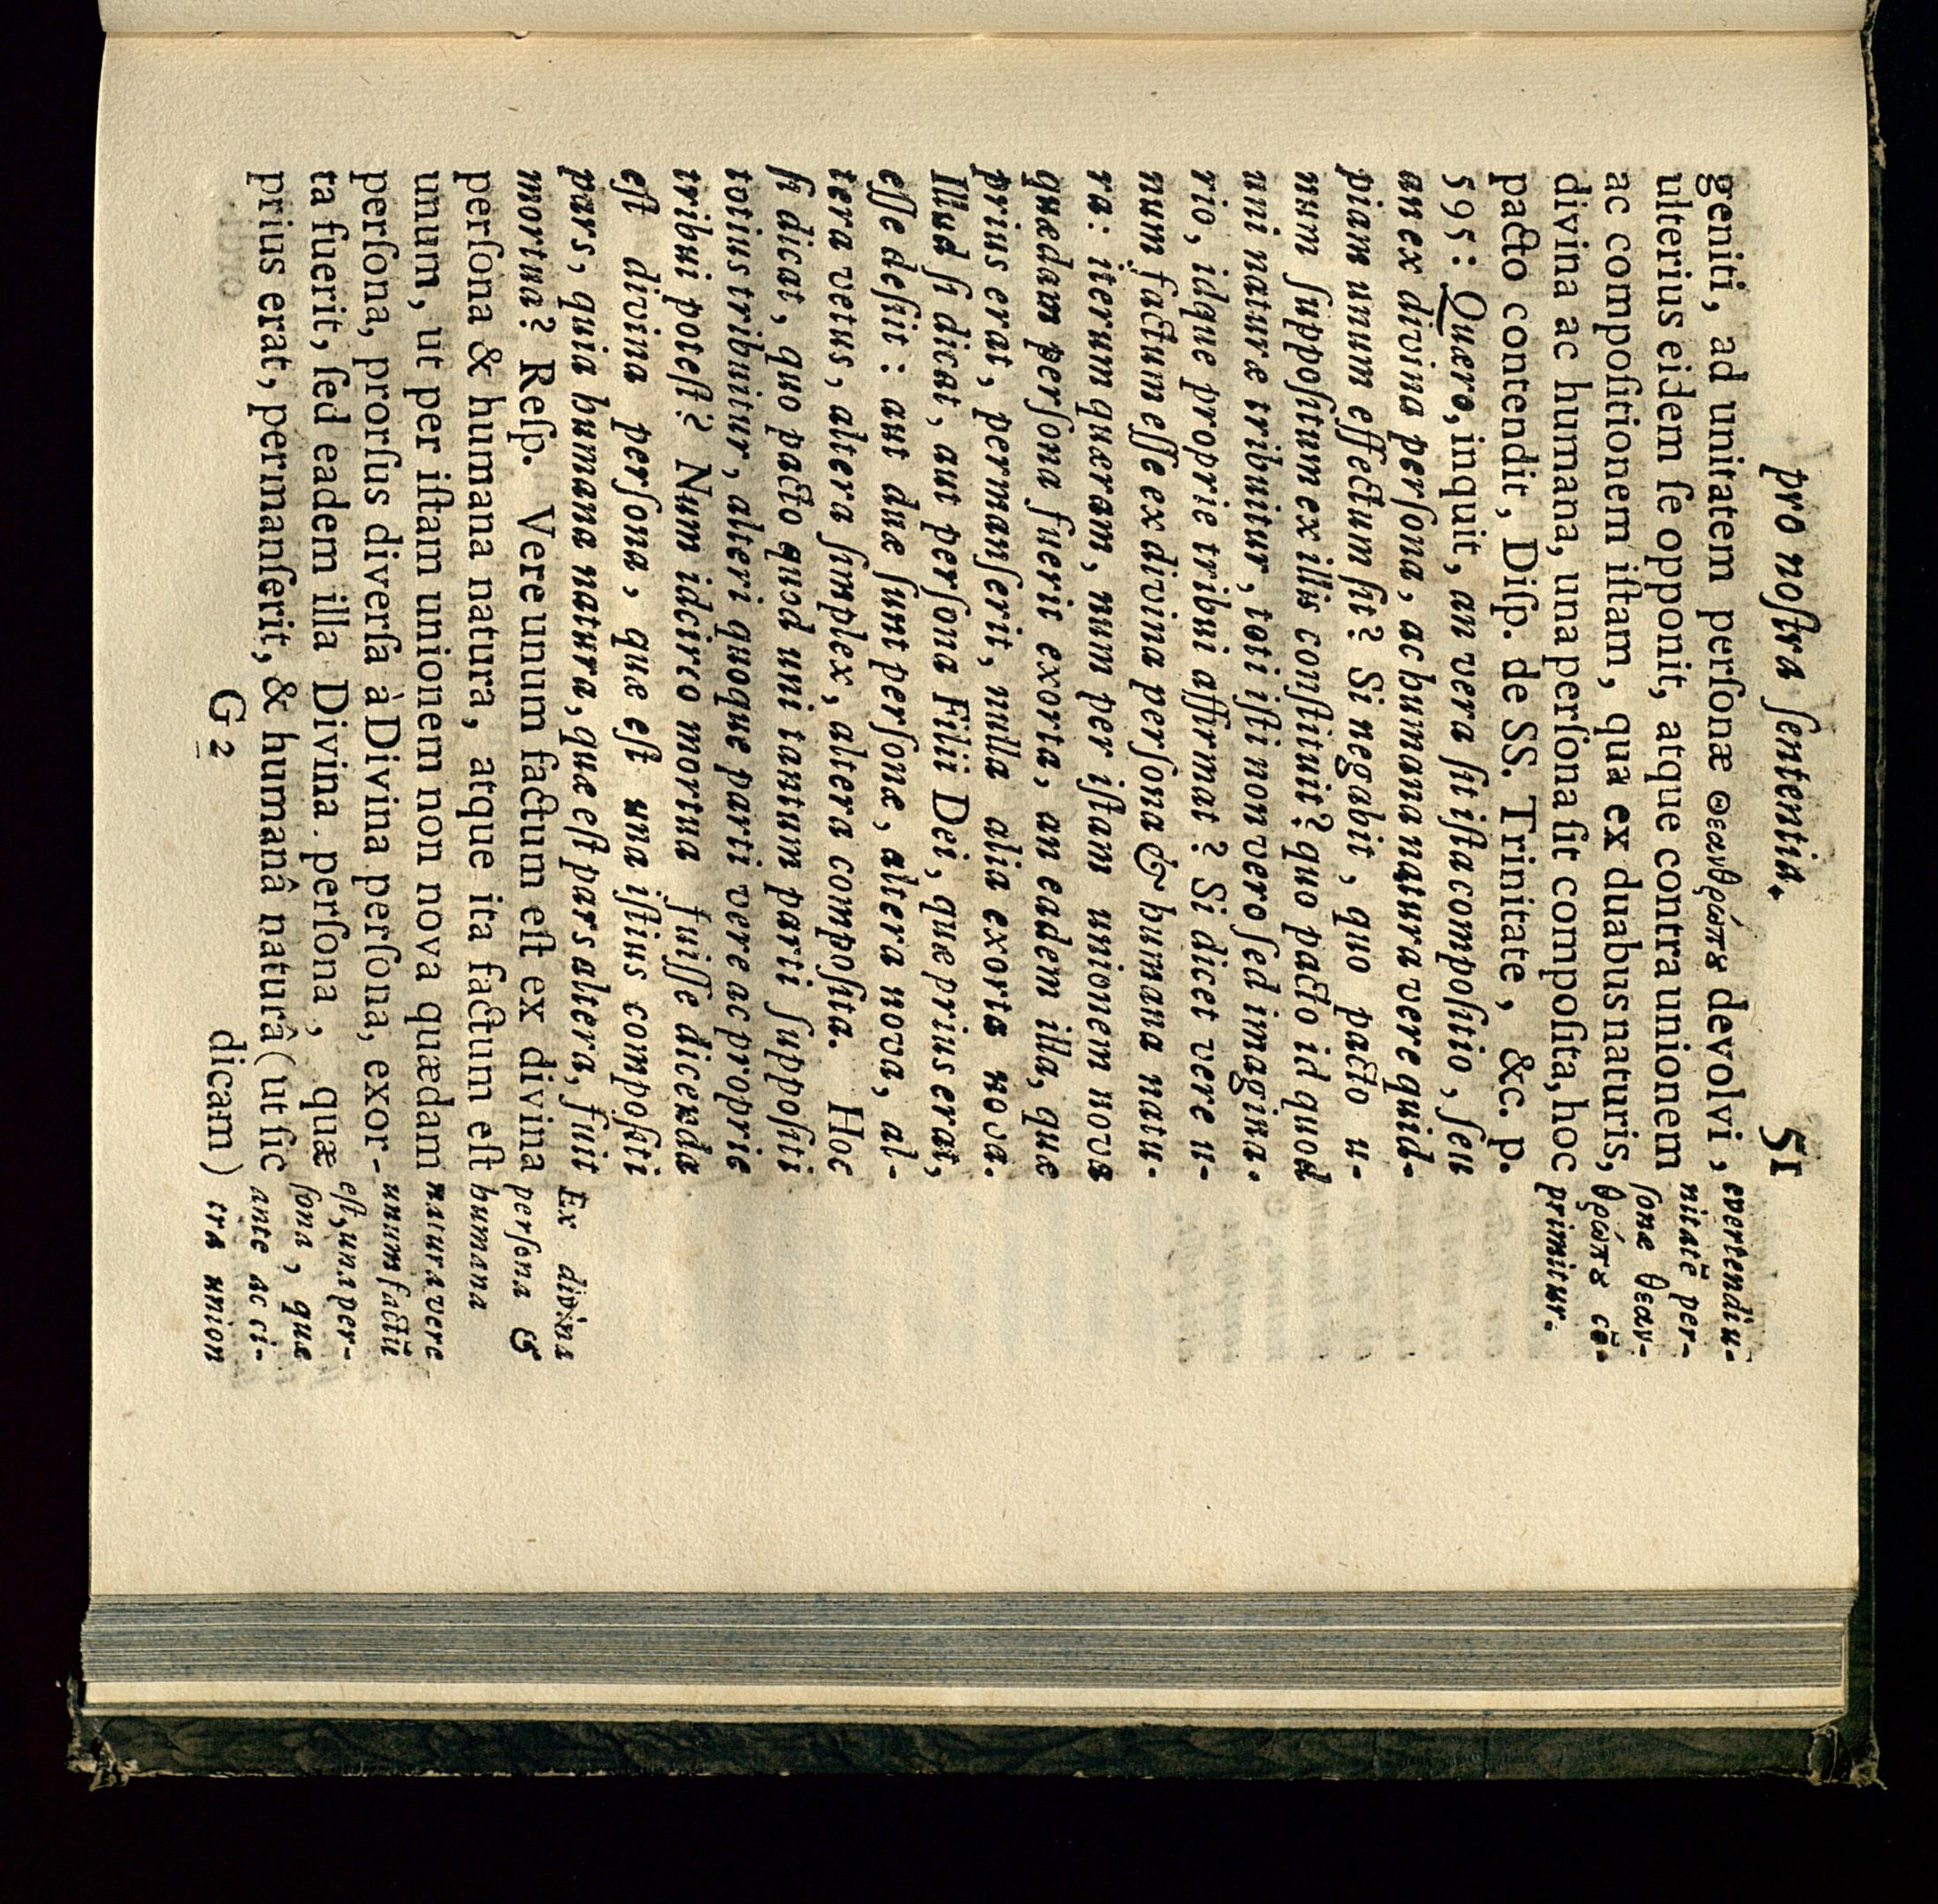 pro noſtra ſententia. 51
geniti, ad unitatem perſonæ Θεανθρώπȣ devolvi,
ulterius eidem ſe opponit, atque contra unionem
ac compoſitionem iſtam, qua ex duabus naturis,
divina ac humana, una perſona ſit compoſita, hoc
pacto contendit, Diſp. de SS. Trinitate, &c. p.
595: Quæro, inquit, an vera ſit iſta compoſitio, ſeu
an ex divina perſona, ac humana natura vere quid-
piam unum effectum ſit? Si negabit, quo pacto u-
num ſuppoſitum ex illis conſtituit? quo pacto id quod
uni naturæ tribuitur, toti iſti non vero ſed imagina-
rio, idque proprie tribui affirmat? Si dicet vere u-
num factum eſſe ex divina perſona & humana natu-
ra: iterum quæram, num per iſtam unionem nova
quædam perſona fuerit exorta, an eadem illa, quæ
prius erat, permanſerit, nulla alia exorta nova.
Illud ſi dicat, aut perſona Filii Dei, quæ prius erat,
eſſe deſiit: aut duæ ſunt perſonæ, altera nova, al-
tera vetus, altera ſimplex, altera compoſita. Hoc
ſi dicat, quo pacto quod uni tantum parti ſuppoſiti
totius tribuitur, alteri quoque parti vere ac proprie
tribui poteſt? Num idcirco mortua fuiſſe dicenda
eſt divina perſona, quæ eſt una iſtius compoſiti
pars, quia humana natura, quæ eſt pars altera, fuit
mortua? Reſp. Vere unum factum eſt ex divina
perſona & humana natura, atque ita factum eſt
unum, ut per iſtam unionem non nova quædam
perſona, prorſus diverſa à Divina perſona, exor-
ta fuerit, ſed eadem illa Divina perſona, quæ
prius erat, permanſerit, & humanâ naturâ (ut ſic
G 2 dicam)
evertendi u-
nitatẽ per-
ſonæ θεαν-
θρώπȣ cõ-
primitur.
Ex divina
perſona &
humana
natura vere
unum factũ
eſt, una per-
ſona, quæ
ante ac ci-
tra union